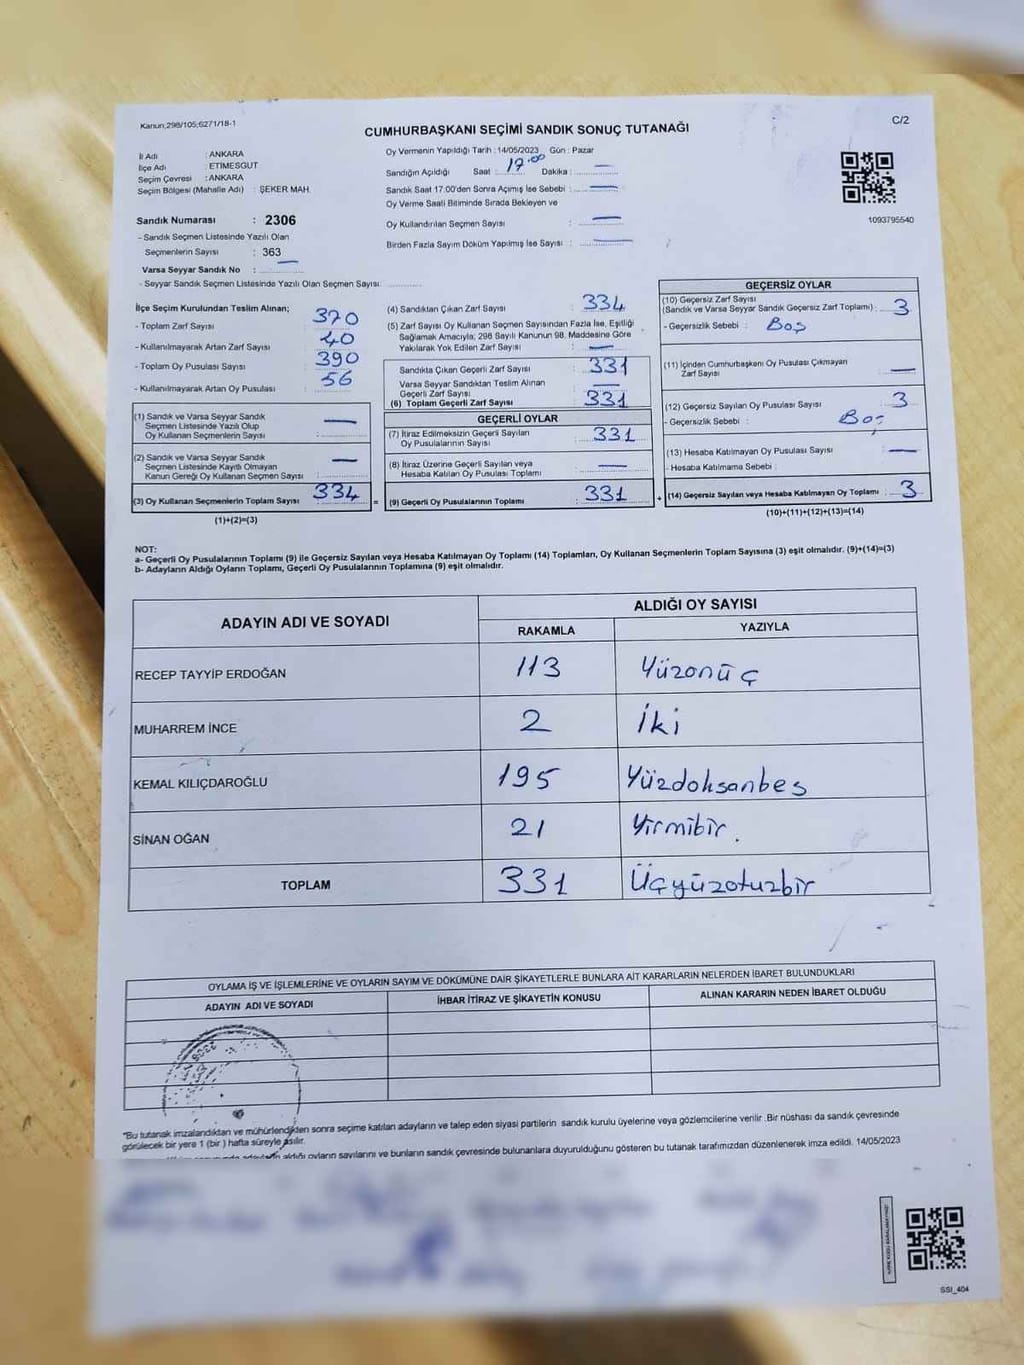 Kanun;298/105;6271/18-1
C/2
CUMHURBAŞKANI SEÇİMİ SANDIK SONUÇ TUTANAĞI
İl Adı : ANKARA
İlçe Adı : ETİMESGUT
Seçim Çevresi : ANKARA
Seçim Bölgesi (Mahalle Adı) : ŞEKER MAH.
Sandık Numarası : 2306
- Sandık Seçmen Listesinde Yazılı Olan
Seçmenlerin Sayısı : 363
Varsa Seyyar Sandık No :
- Seyyar Sandık Seçmen Listesinde Yazılı Olan Seçmen Sayısı:
Oy Vermenin Yapıldığı Tarih : 14/05/2023 Gün : Pazar
Sandığın Açıldığı Saat : 17.00 Dakika :
Sandık Saat 17:00'den Sonra Açımış İse Sebebi :
Oy Verme Saati Bitiminde Sırada Bekleyen ve
Oy Kullandırılan Seçmen Sayısı :
Birden Fazla Sayım Döküm Yapılmış İse Sayısı :
1093795540
İlçe Seçim Kurulundan Teslim Alınan;
- Toplam Zarf Sayısı : 370
- Kullanılmayarak Artan Zarf Sayısı : 40
- Toplam Oy Pusulası Sayısı : 390
- Kullanılmayarak Artan Oy Pusulası : 56
(1) Sandık ve Varsa Seyyar Sandık
Seçmen Listesinde Yazılı Olup
Oy Kullanan Seçmenlerin Sayısı
(2) Sandık ve Varsa Seyyar Sandık
Seçmen Listesinde Kayıtlı Olmayan
Kanun Gereği Oy Kullanan Seçmen Sayısı
(3) Oy Kullanan Seçmenlerin Toplam Sayısı 334 =
(1)+(2)=(3)
(4) Sandıktan Çıkan Zarf Sayısı : 334
(5) Zarf Sayısı Oy Kullanan Seçmen Sayısından Fazla İse, Eşitliği
Sağlamak Amacıyla; 298 Sayılı Kanunun 98. Maddesine Göre
Yakılarak Yok Edilen Zarf Sayısı :
Sandıkta Çıkan Geçerli Zarf Sayısı : 331
Varsa Seyyar Sandıktan Teslim Alınan
Geçerli Zarf Sayısı :
(6) Toplam Geçerli Zarf Sayısı : 331
GEÇERLİ OYLAR
(7) İtiraz Edilmeksizin Geçerli Sayılan
Oy Pusulalarının Sayısı : 331
(8) İtiraz Üzerine Geçerli Sayılan veya
Hesaba Katılan Oy Pusulası Toplamı :
(9) Geçerli Oy Pusulalarının Toplamı : 331 +
GEÇERSİZ OYLAR
(10) Geçersiz Zarf Sayısı
(Sandık ve Varsa Seyyar Sandık Geçersiz Zarf Toplamı) : 3
- Geçersizlik Sebebi : Boş
(11) İçinden Cumhurbaşkanı Oy Pusulası Çıkmayan
Zarf Sayısı :
(12) Geçersiz Sayılan Oy Pusulası Sayısı : 3
- Geçersizlik Sebebi : Boş
(13) Hesaba Katılmayan Oy Pusulası Sayısı :
- Hesaba Katılmama Sebebi :
(14) Geçersiz Sayılan veya Hesaba Katılmayan Oy Toplamı : 3
(10)+(11)+(12)+(13)=(14)
NOT:
a- Geçerli Oy Pusulalarının Toplamı (9) ile Geçersiz Sayılan veya Hesaba Katılmayan Oy Toplamı (14) Toplamları, Oy Kullanan Seçmenlerin Toplam Sayısına (3) eşit olmalıdır. (9)+(14)=(3)
b- Adayların Aldığı Oyların Toplamı, Geçerli Oy Pusulalarının Toplamına (9) eşit olmalıdır.
ADAYIN ADI VE SOYADI
ALDIĞI OY SAYISI
RAKAMLA YAZIYLA
RECEP TAYYİP ERDOĞAN 113 Yüzonüç
MUHARREM İNCE 2 İki
KEMAL KILIÇDAROĞLU 195 Yüzdoksanbeş
SİNAN OĞAN 21 Yirmibir.
TOPLAM 331 Üçyüzotuzbir
OYLAMA İŞ VE İŞLEMLERİNE VE OYLARIN SAYIM VE DÖKÜMÜNE DAİR ŞİKAYETLERLE BUNLARA AİT KARARLARIN NELERDEN İBARET BULUNDUKLARI
ADAYIN ADI VE SOYADI İHBAR İTİRAZ VE ŞİKAYETİN KONUSU ALINAN KARARIN NEDEN İBARET OLDUĞU
"Bu tutanak imzalandıktan ve mühürlendikten sonra seçime katılan adayların ve talep eden siyasi partilerin sandık kurulu üyelerine veya gözlemcilerine verilir .Bir nüshası da sandık çevresinde
görülecek bir yere 1 (bir ) hafta süreyle asılır.
aldığı oyların sayılarını ve bunların sandık çevresinde bulunanlara duyurulduğunu gösteren bu tutanak tarafımızdan düzenlenerek imza edildi. 14/05/2023
SSI_404